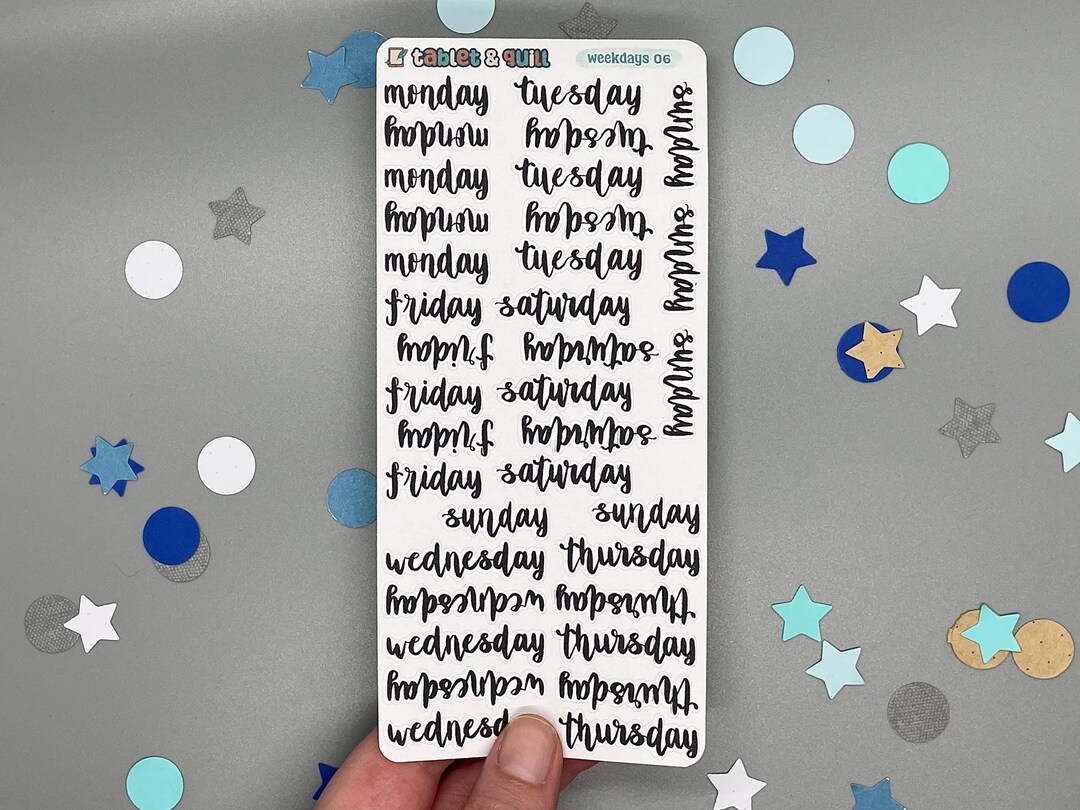 tablet & quill weekdays 06
monday tuesday sunday
monday tuesday
monday tuesday
monday tuesday sunday
monday tuesday
friday saturday
friday saturday sunday
friday saturday
friday saturday
friday saturday
sunday sunday
wednesday thursday
wednesday thursday
wednesday thursday
wednesday thursday
wednesd thursday